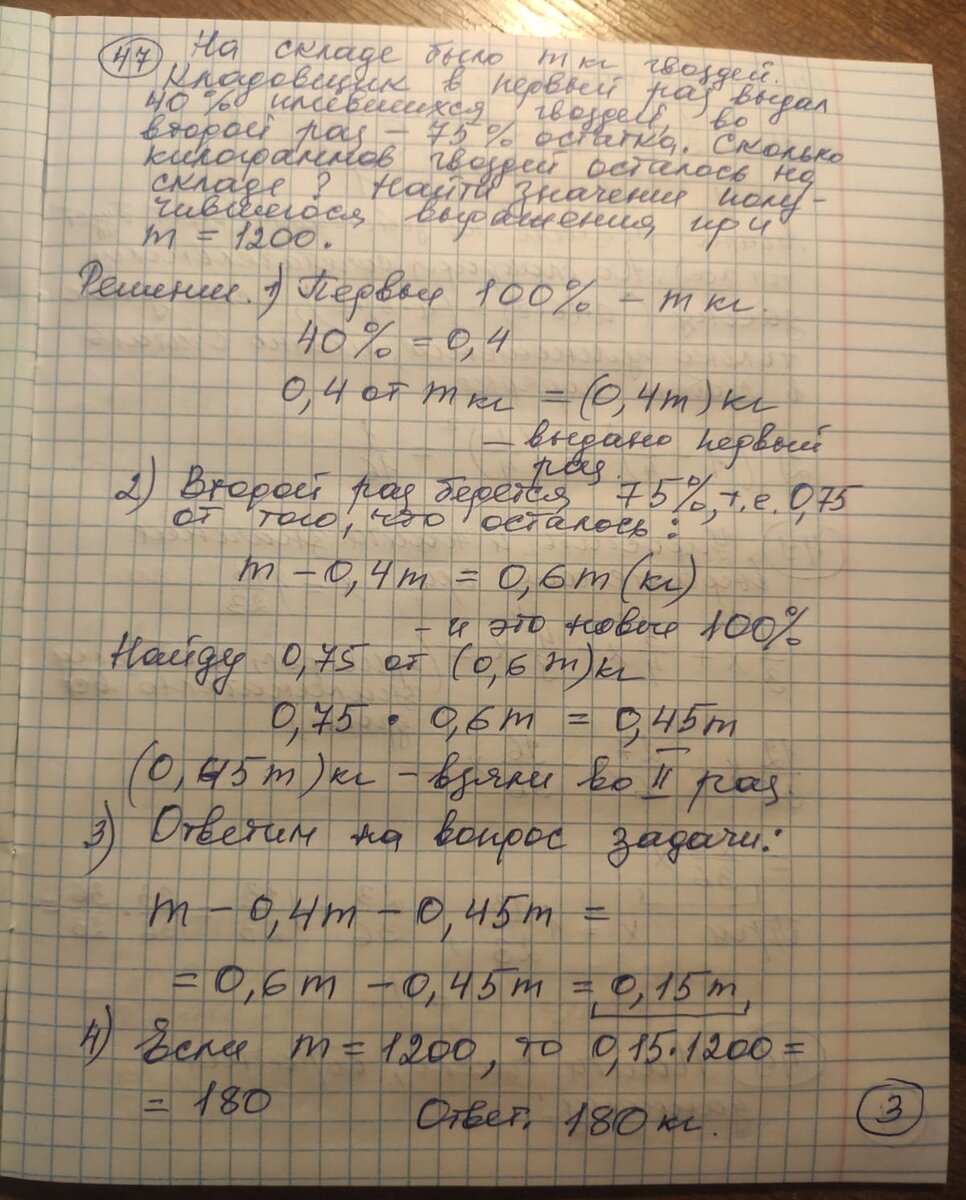 47 На складе было m кг гвоздей.
Кладовщик в первый раз выдал
40% имевшихся гвоздей, во
второй раз – 75% остатка. Сколько
килограммов гвоздей осталось на
складе? Найти значение полу-
чившегося выражения при
m = 1200.
Решение. 1) Первые 100% – m кг.
40% = 0,4
0,4 от m кг = (0,4m) кг
– выдано первый
раз.
2) Второй раз берется 75%, т.е. 0,75
от того, что осталось:
m – 0,4m = 0,6m (кг)
– и это новые 100%
Найду 0,75 от (0,6m) кг
0,75 · 0,6m = 0,45m
(0,45m) кг – взяли во II раз.
3) Ответим на вопрос задачи:
m – 0,4m – 0,45m =
= 0,6m – 0,45m = 0,15m
4) Если m = 1200, то 0,15·1200 =
= 180
Ответ. 180 кг.
3